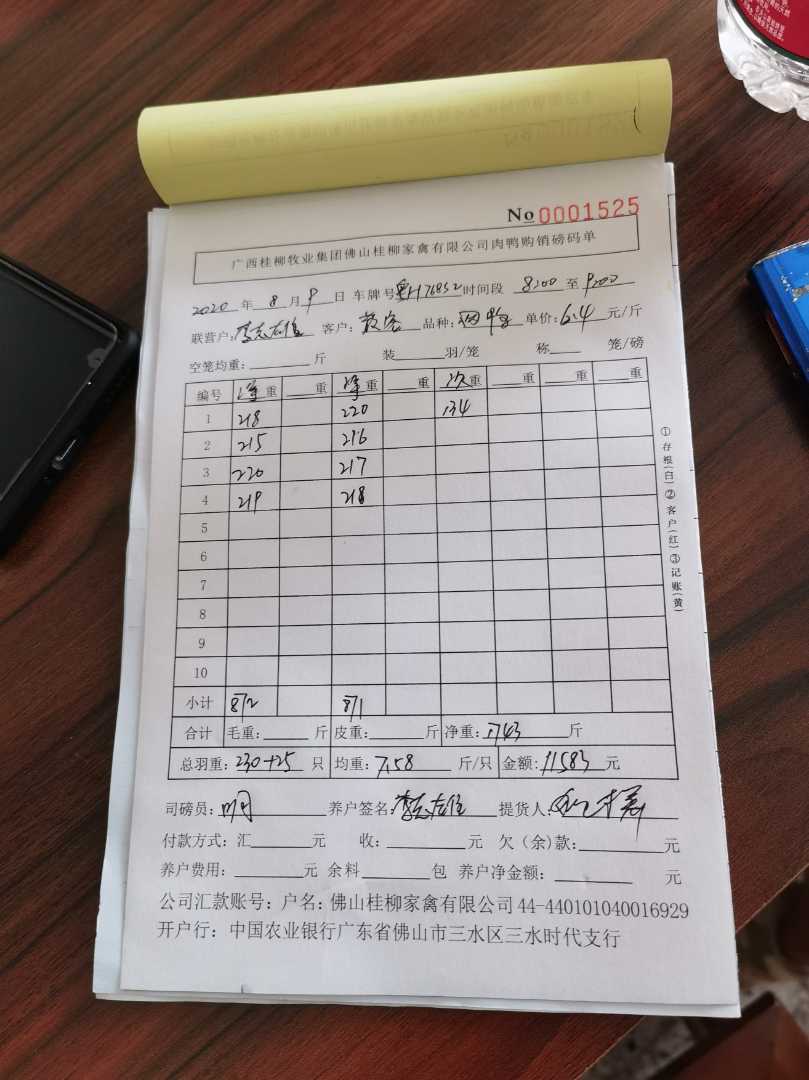 No 0001525
广西桂柳牧业集团佛山桂柳家禽有限公司肉鸭购销磅码单
2020 年 8 月 9 日 车牌号 粤H76852 时间段 8:00 至 9:00
联营户: 李志雄 客户: 散客 品种: 单价: 6.4 元/斤
空笼均重: 斤 装 羽/笼 称 笼/磅
编号 净重 重 净重 重 次重 重 重 重
1 218 220 134
2 215 216
3 220 217
4 219 218
5
6
7
8
9
10
小计 872 871
合计 毛重: 斤 皮重: 斤 净重: 1743 斤
总羽重: 230+25 只 均重: 7.58 斤/只 金额: 11583 元
司磅员: 明 养户签名: 李志雄 提货人:
付款方式: 汇 元 收: 元 欠（余）款: 元
养户费用: 元 余料 包 养户净金额: 元
公司汇款账号: 户名: 佛山桂柳家禽有限公司 44-440101040016929
开户行: 中国农业银行广东省佛山市三水区三水时代支行
①存根(白)②客户(红)③记账(黄)